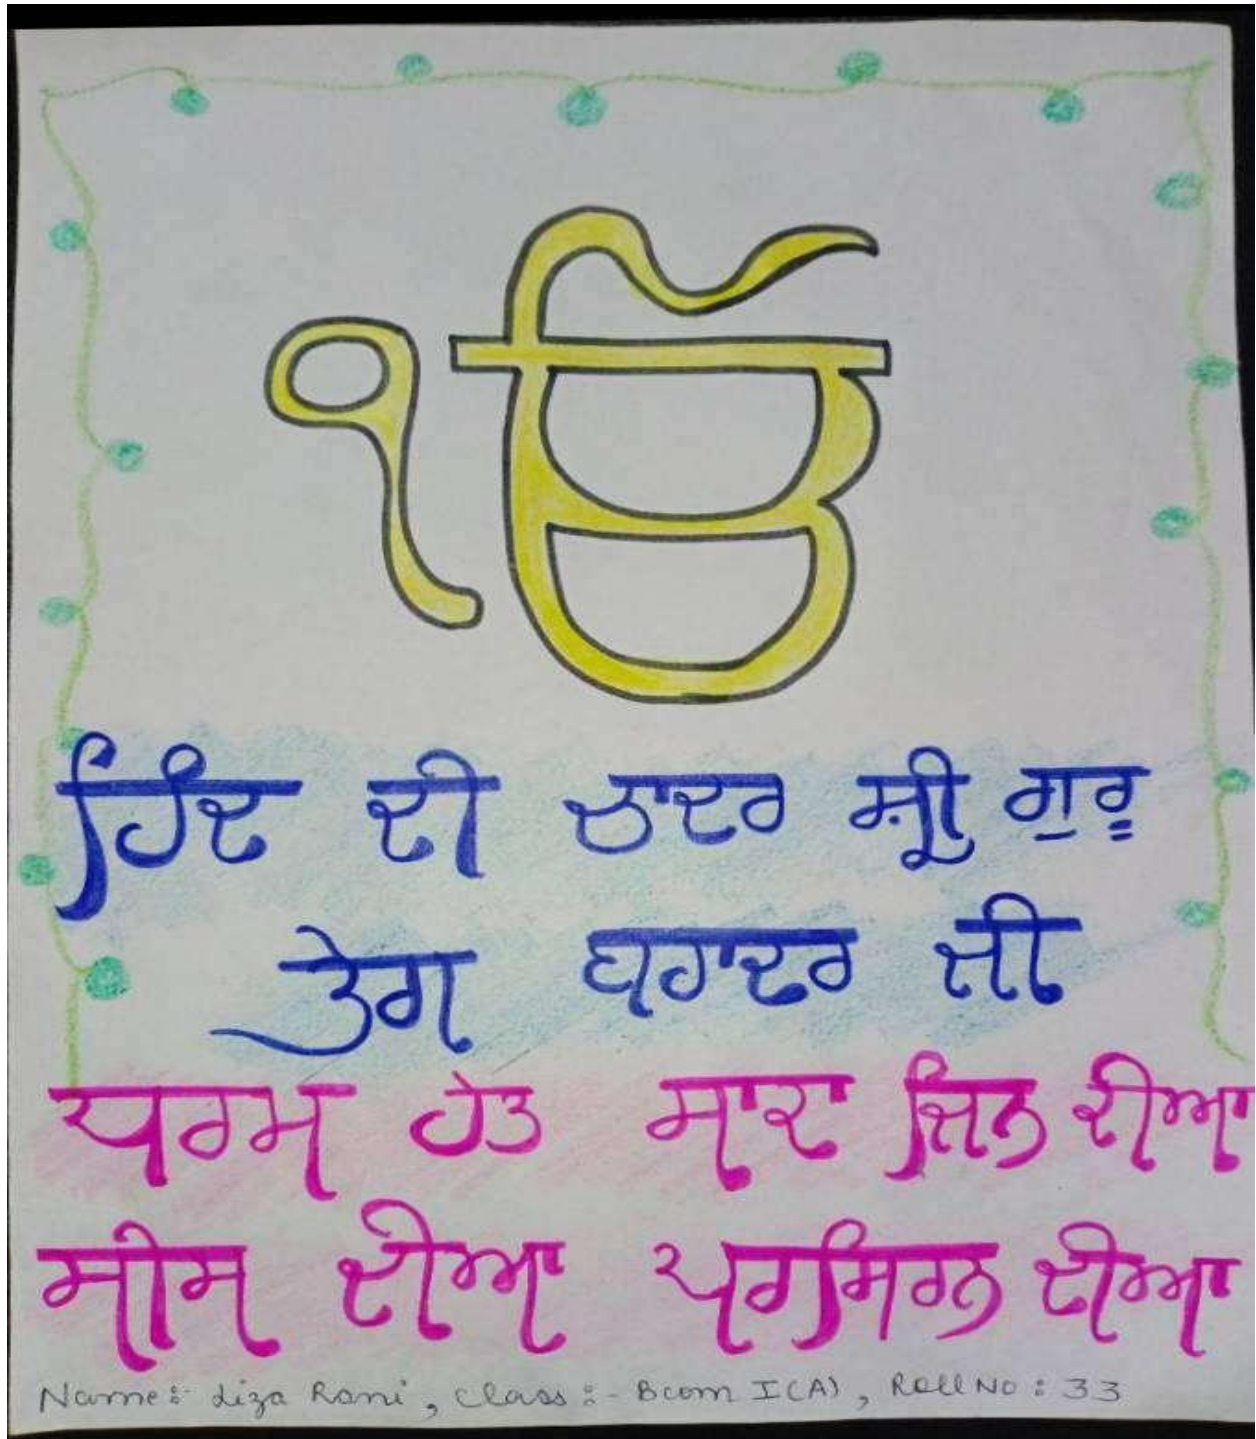 ੴ
ਹਿੰਦ ਦੀ ਚਾਦਰ ਸ਼੍ਰੀ ਗੁਰੂ
ਤੇਗ ਬਹਾਦਰ ਜੀ
ਧਰਮ ਹੇਤ ਸਾਕਾ ਜਿਨ ਕੀਆ
ਸੀਸ ਦੀਆ ਪਰਸਿਰਰੁ ਦੀਆ
Name:- Liza Rani, Class:- Bcom I(A), Roll No: 33